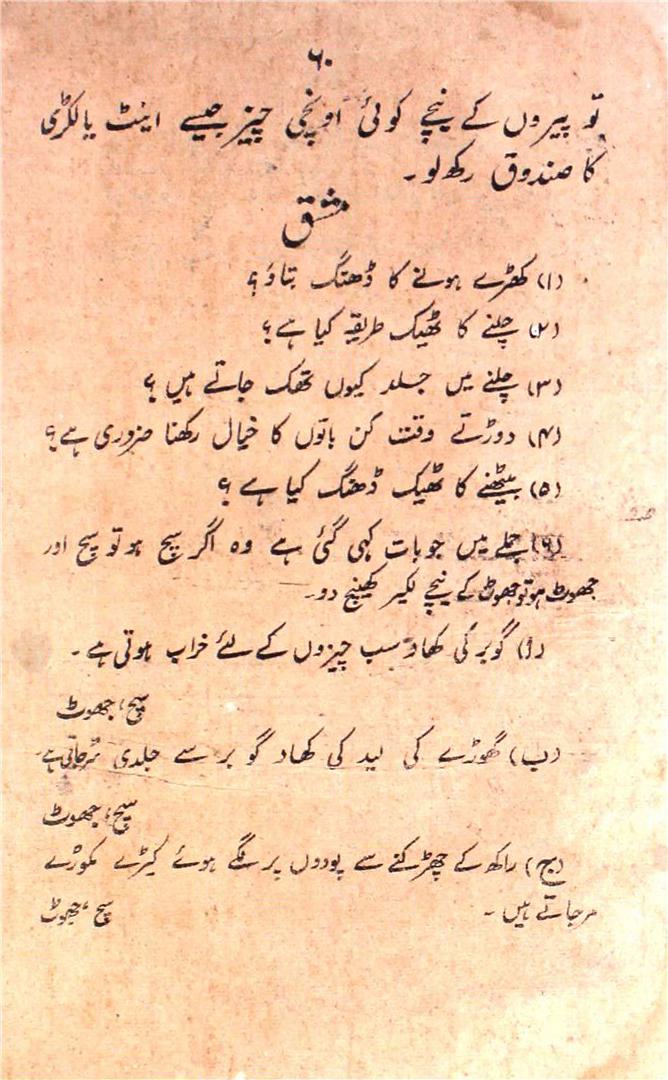 ۶۰
تو پیروں کے نیچے کوئی اونچی چیز جیسے اینٹ یا لکڑی
کا صندوق رکھ لو۔
مشق
(۱) کھڑے ہونے کا ڈھنگ بتاؤ؟
(۲) چلنے کا ٹھیک طریقہ کیا ہے؟
(۳) چلنے میں جلد کیوں تھک جاتے ہیں؟
(۴) دوڑتے وقت کن باتوں کا خیال رکھنا ضروری ہے؟
(۵) بیٹھنے کا ٹھیک ڈھنگ کیا ہے؟
(۶) جملے میں جو بات کہی گئی ہے وہ اگر سچ ہو تو سچ اور
جھوٹ ہو تو جھوٹ کے نیچے لکیر کھینچ دو۔
(ا) گوبر کی کھاد سب چیزوں کے لئے خراب ہوتی ہے۔
سچ، جھوٹ
(ب) گھوڑے کی لید کی کھاد گوبر سے جلدی سڑ جاتی ہے۔
سچ، جھوٹ
(ج) راکھ کے چھڑکنے سے پودوں پر لگے ہوئے کیڑے مکوڑے
مرجاتے ہیں۔ سچ، جھوٹ